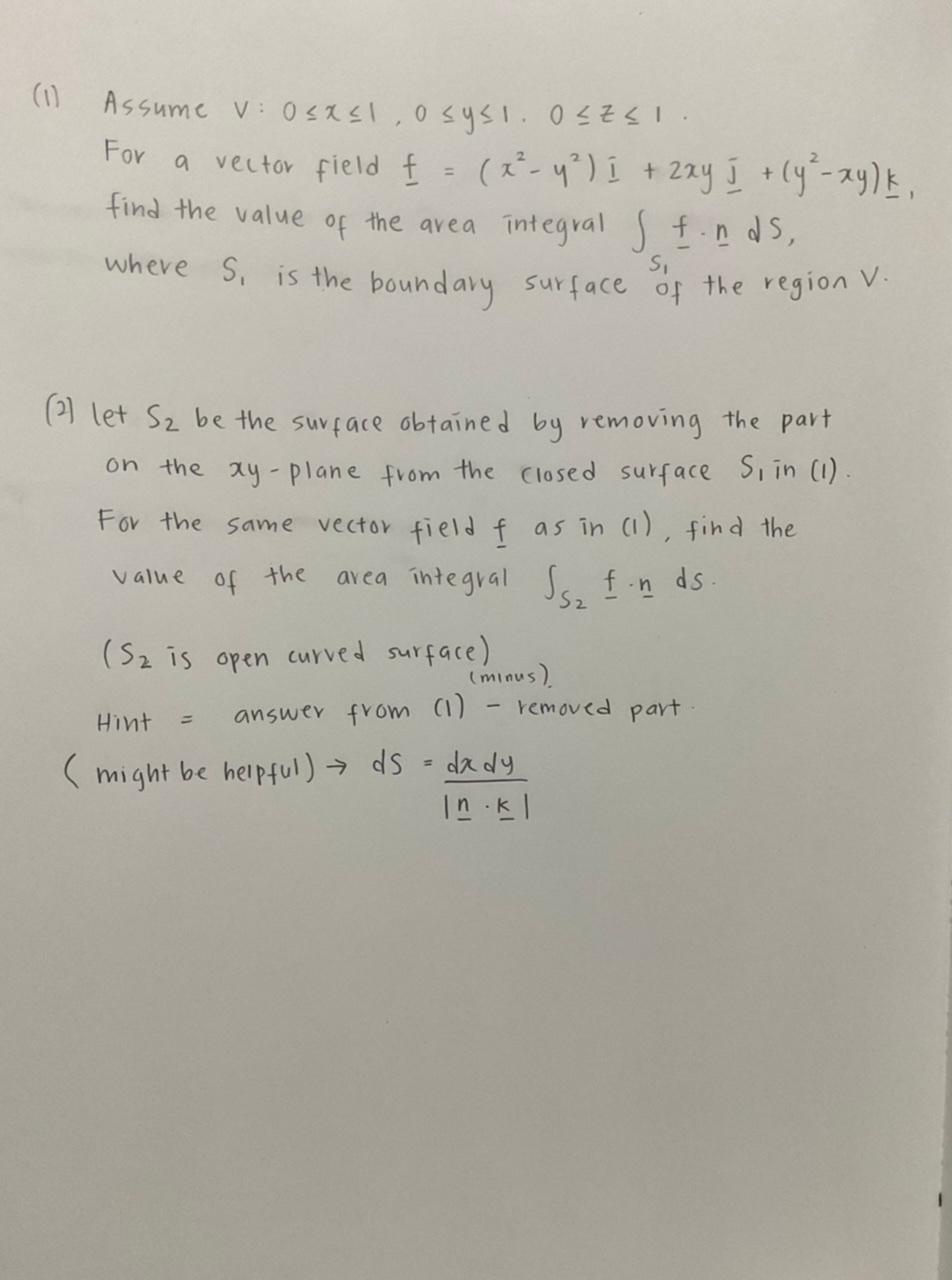 (1) Assume V: 0≤x≤1, 0≤y≤1. 0≤z≤1.
For a vector field f = (x²-y²) i + 2xy j + (y²-xy) k,
find the value of the area integral ∫S₁ f · n dS,
where S₁ is the boundary surface of the region V.
(2) let S₂ be the surface obtained by removing the part
on the xy-plane from the closed surface S₁ in (1).
For the same vector field f as in (1), find the
value of the area integral ∫S₂ f · n ds.
(S₂ is open curved surface)
(minus)
Hint = answer from (1) - removed part.
(might be helpful) → dS = dxdy
|n · k|